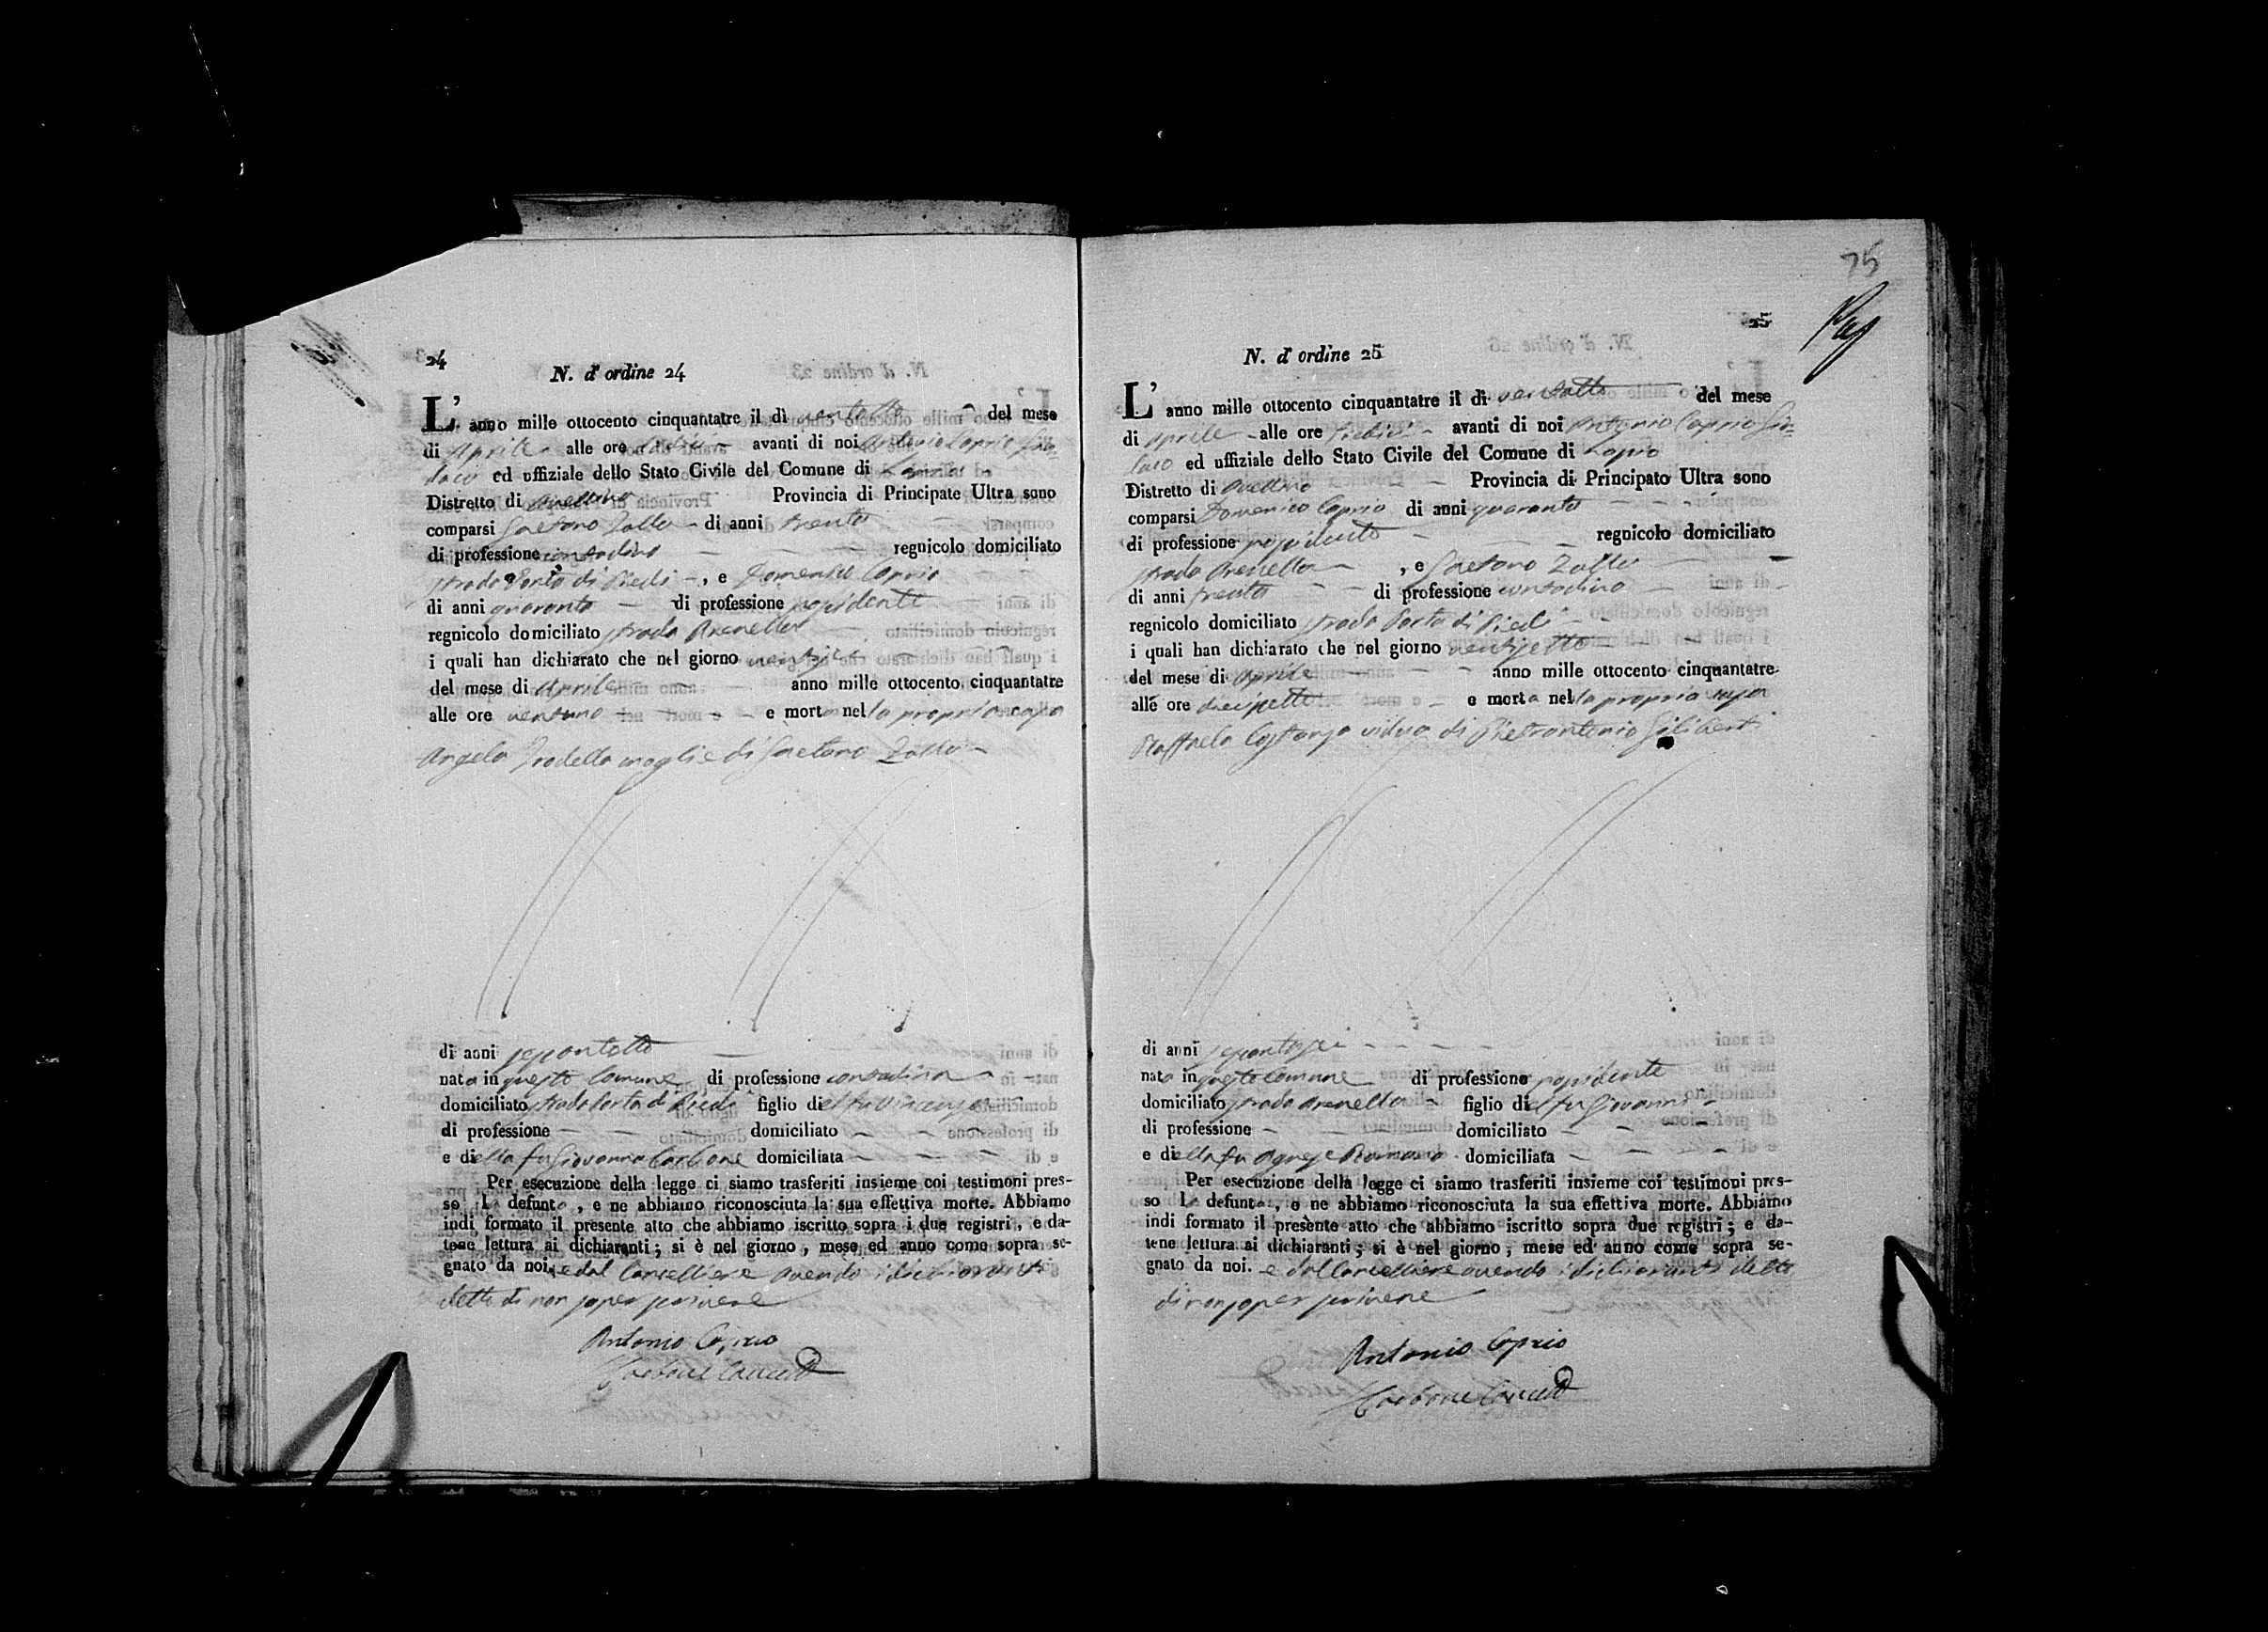 24
N. d' ordine 24
L' anno mille ottocento cinquantatre il dì ventotto del mese
di Aprile alle ore avanti di noi Antonio Caprio Sin-
daco ed uffiziale dello Stato Civile del Comune di Lapio
Distretto di Avellino Provincia di Principate Ultra sono
comparsi Gaetano Zollo di anni trenta
di professione contadino regnicolo domiciliato
strada Porta di Piedi, e Domenico Caprio
di anni quaranta di professione possidente
regnicolo domiciliato strada Arenella
i quali han dichiarato che nel giorno
del mese di Aprile anno mille ottocento cinquantatre
alle ore ventuno e morta nella propria casa
Angela moglie di Gaetano Zollo
di anni
nata in questo Comune di professione contadina
domiciliato strada Porta di Piedi figlio del fu Vincenzo
di professione domiciliato
e della fu Giovanna Carbone domiciliata
Per esecuzione della legge ci siamo trasferiti insieme coi testimoni pres-
so la defunta, e ne abbiamo riconosciuta la sua effettiva morte. Abbiamo
indi formato il presente atto che abbiamo iscritto sopra i due registri, e da-
tone lettura ai dichiaranti; si è nel giorno, mese ed anno come sopra se-
gnato da noi, e dal Cancelliere avendo i dichiaranti
detto di non saper scrivere
Antonio Caprio
Carbone Cancell
75
25
N. d' ordine 25
L' anno mille ottocento cinquantatre il dì ventotto del mese
di Aprile alle ore tredici avanti di noi Antonio Caprio Sin-
daco ed uffiziale dello Stato Civile del Comune di Lapio
Distretto di Avellino Provincia di Principato Ultra sono
comparsi Domenico Caprio di anni quaranta
di professione possidente regnicolo domiciliato
strada Arenella, e Gaetano Zollo
di anni trenta di professione contadino
regnicolo domiciliato strada Porta di Piedi
i quali han dichiarato che nel giorno ventisette
del mese di Aprile anno mille ottocento cinquantatre
alle ore diecisette e morta nella propria casa
Raffaela Costanza vidua di Pietrantonio Giliberti
di anni
nata in questo Comune di professione possidente
domiciliato strada Arenella figlio del fu Giovanni
di professione domiciliato
e della fu Agnese Romano domiciliata
Per esecuzione della legge ci siamo trasferiti insieme coi testimoni pres-
so la defunta, e ne abbiamo riconosciuta la sua effettiva morte. Abbiamo
indi formato il presente atto che abbiamo iscritto sopra due registri; e da-
tene lettura ai dichiaranti; si è nel giorno, mese ed anno come sopra se-
gnato da noi. e dal Cancelliere avendo i dichiaranti detto
di non saper scrivere
Antonio Caprio
Carbone Cancell